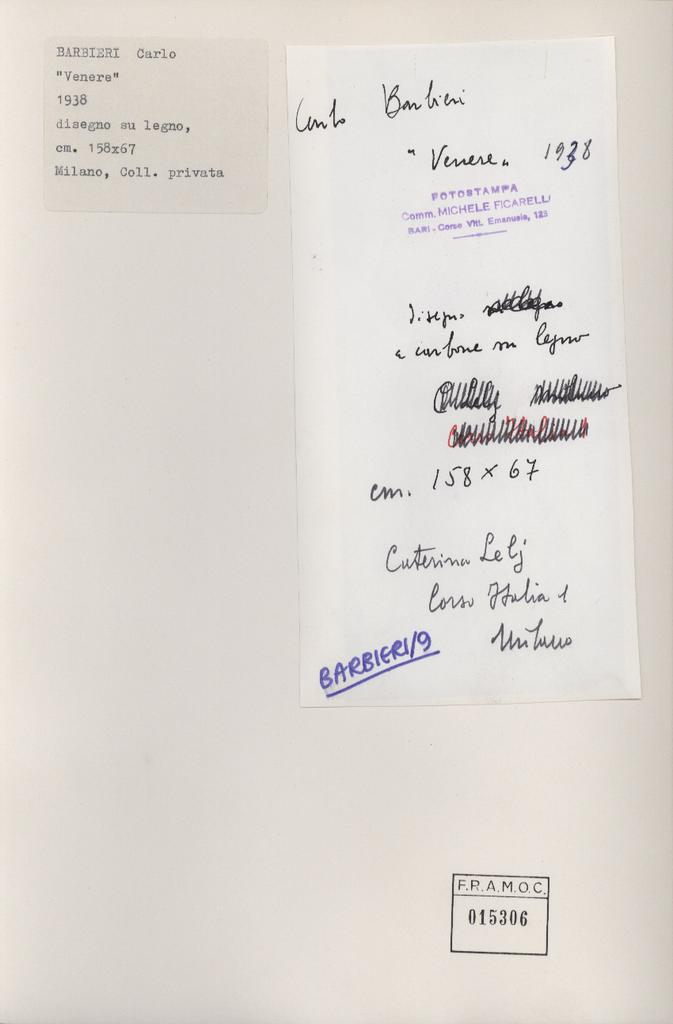 BARBIERI Carlo
"Venere"
1938
disegno su legno,
cm. 158x67
Milano, Coll. privata
Carlo Barbieri
"Venere" 1938
FOTOSTAMPA
Comm. MICHELE FICARELLI
BARI - Corso Vitt. Emanuele, 123
disegno
a carbone su legno
cm. 158 x 67
Caterina Lelj
Corso Italia 1
Milano
BARBIERI/9
F.R.A.M.O.C.
015306